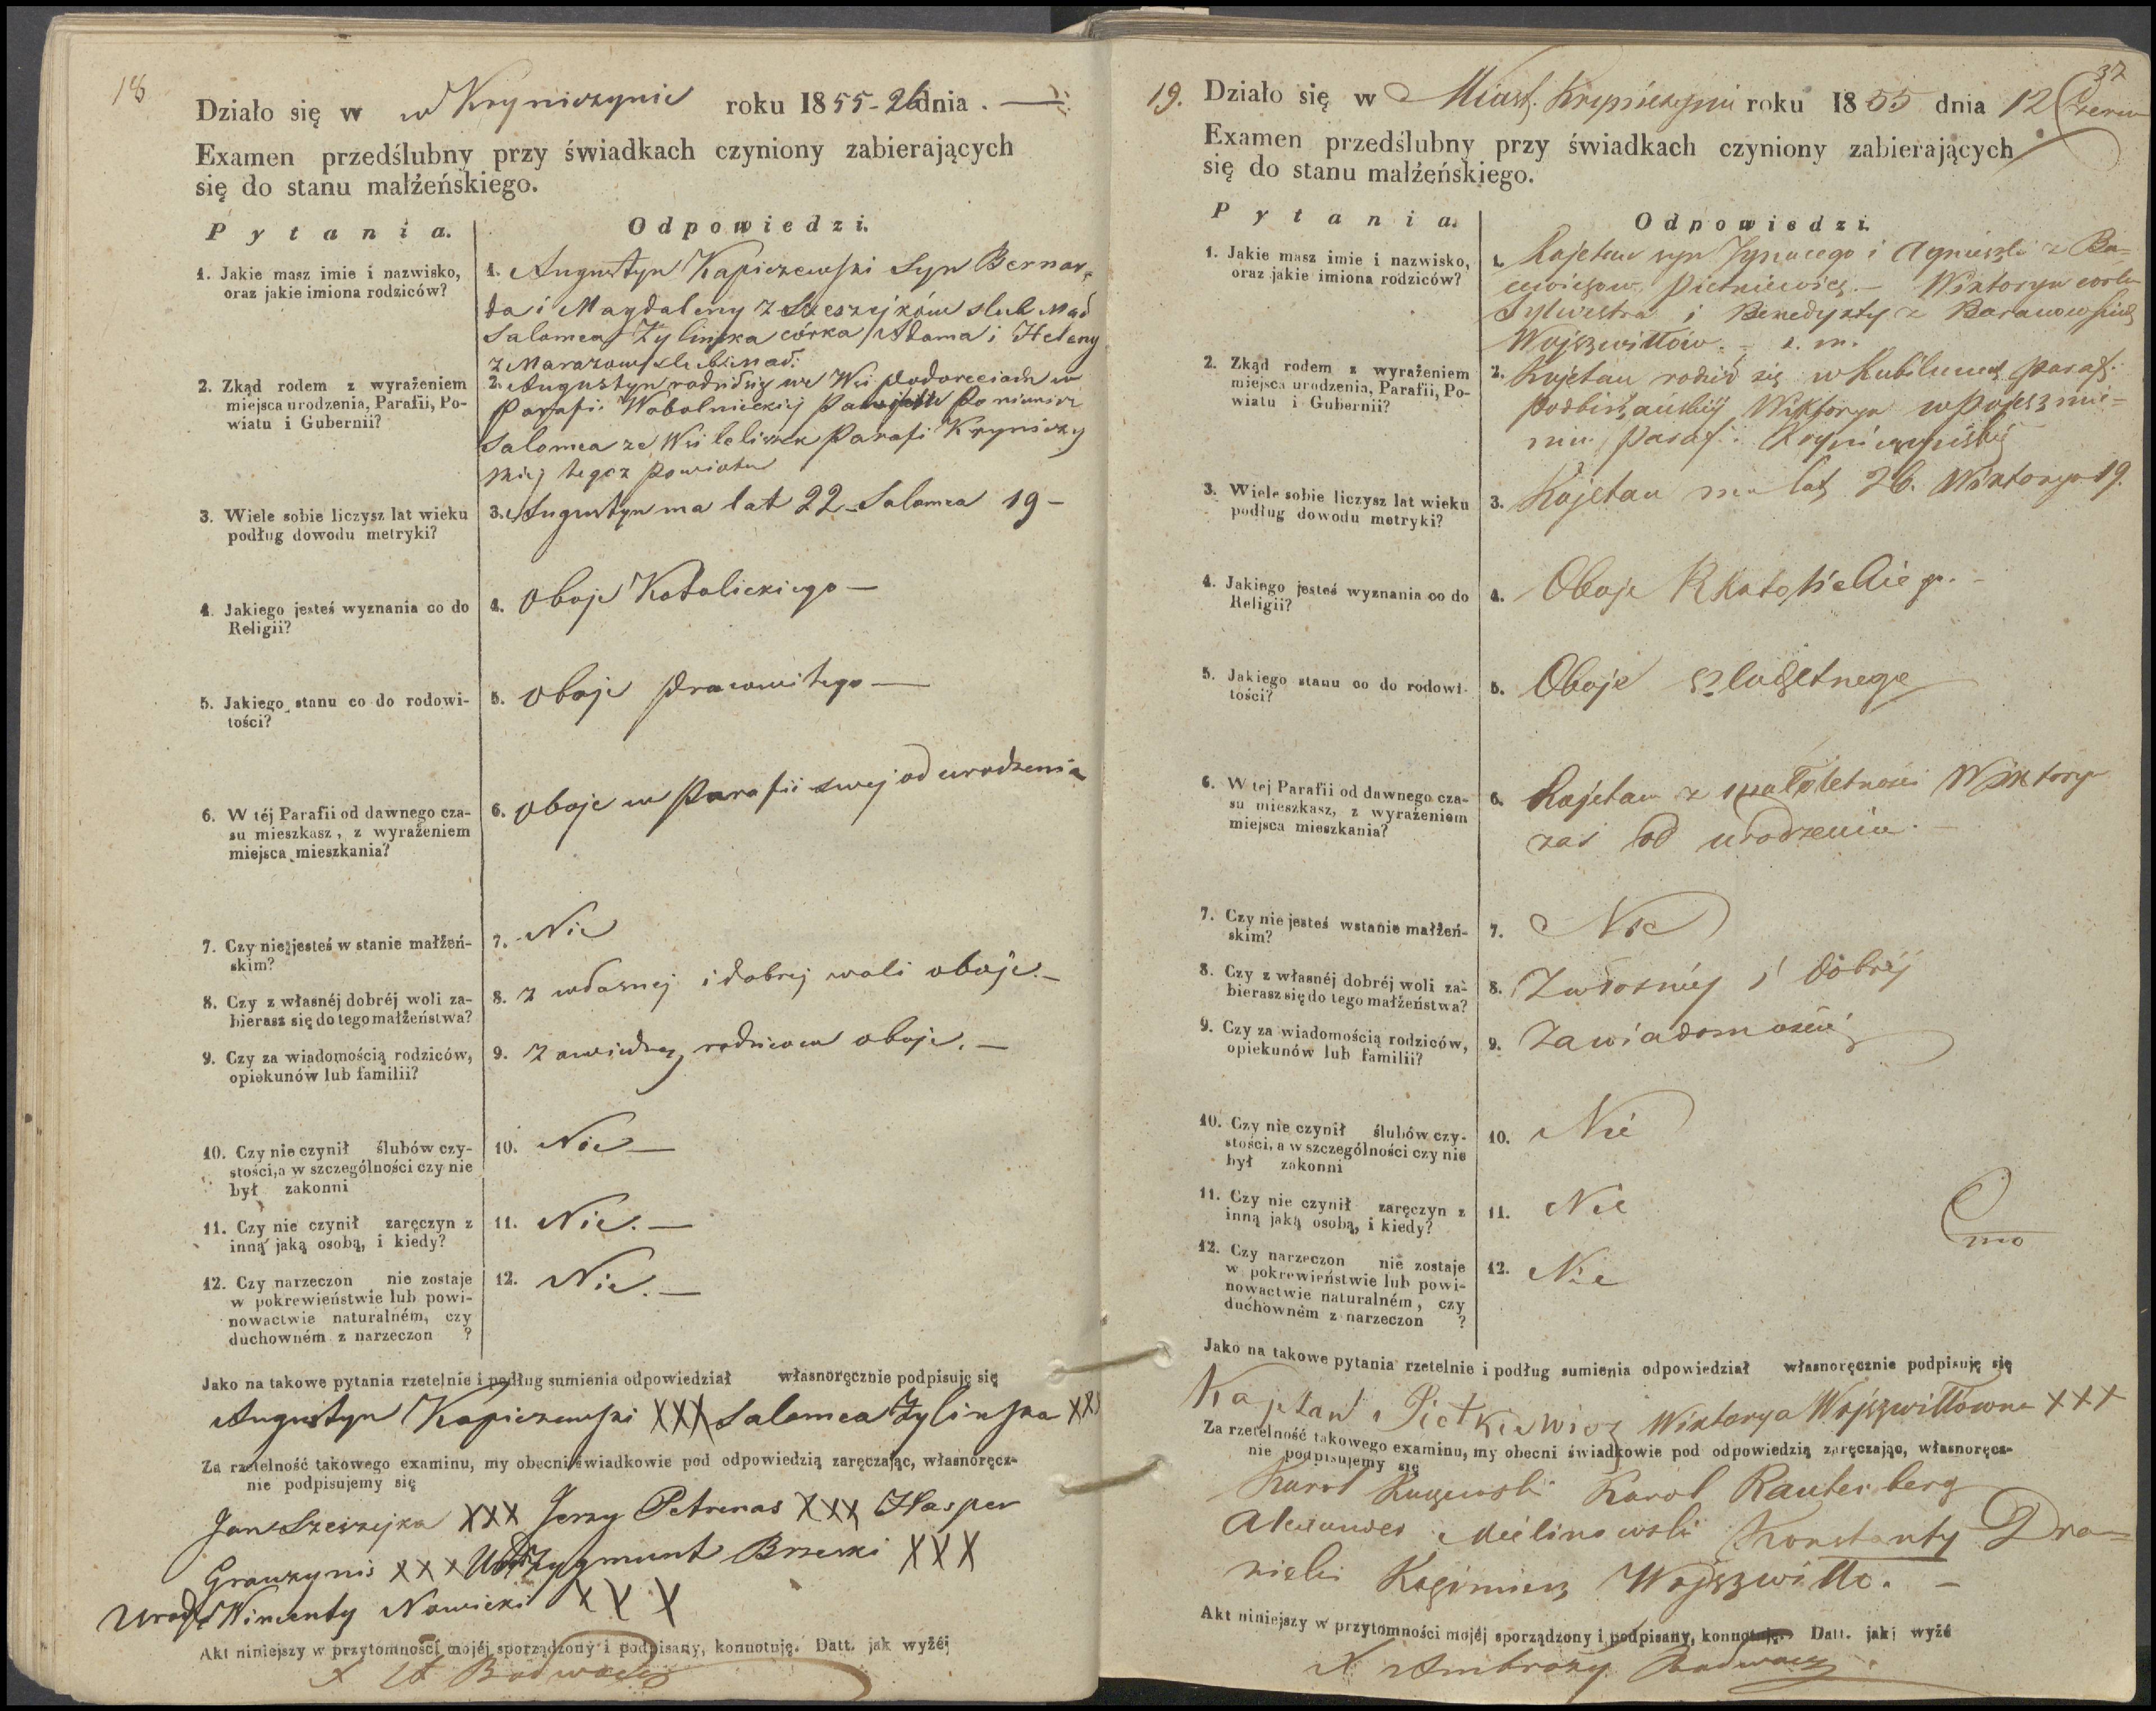 18
Działo się w w Kryniczynie roku 1855-26 dnia . —
Examen przedślubny przy świadkach czyniony zabierających
się do stanu małżeńskiego.
Pytania.
Odpowiedzi.
1. Jakie masz imie i nazwisko,
oraz jakie imiona rodziców?
1. Augustyn Kapiczewski Syn Bernar-
da i Magdaleny z Szeszejków slub Mał
Salomea Żylinska córka Adama i Heleny
2. Zkąd rodem z wyrażeniem
miejsca urodzenia, Parafii, Po-
wiatu i Gubernii?
2. Augustyn rodził się we Wsi w
Parafii Wobolnickiej
Salomea ze Wsi Parafi Kryniczy
skiej tegoz Powiatu
3. Wiele sobie liczysz lat wieku
podług dowodu metryki?
3. Augustyn ma lat 22 - Salomea 19 -
4. Jakiego jesteś wyznania co do
Religii?
4. Oboje Katolickiego —
5. Jakiego stanu co do rodowi-
tości?
5. Oboje Pracowitego —
6. W téj Parafii od dawnego cza-
su mieszkasz, z wyrażeniem
miejsca mieszkania?
6. Oboje w Parafii swej od urodzenia
7. Czy nie jesteś w stanie małżeń-
skim?
7. Nie
8. Czy z własnéj dobréj woli za-
bierasz się do tego małżeństwa?
8. z własnej i dobrej woli oboje. —
9. Czy za wiadomością rodziców,
opiekunów lub familii?
9. Za wiedzą rodziców oboje. —
10. Czy nie czynił ślubów czy-
stości, a w szczególności czy nie
był zakonni
10. Nie —
11. Czy nie czynił zaręczyn z
inną jaką osobą, i kiedy?
11. Nie. —
12. Czy narzeczon nie zostaje
w pokrewieństwie lub powi-
nowactwie naturalném, czy
duchowném z narzeczon ?
12. Nie. —
Jako na takowe pytania rzetelnie i podług sumienia odpowiedział własnoręcznie podpisuję się
Augustyn Kapiczewski XXX Salomea Żylinska XXX
Za rzetelność takowego examinu, my obecni świadkowie pod odpowiedzią zaręczając, własnoręcz-
nie podpisujemy się
Jan Szeszejka XXX Jerzy Petrenas XXX Kasper
Grauzynis XXX Zygmunt Brzeski XXX
Wincenty Nowicki XXX
Akt niniejszy w przytomności mojéj sporządzony i podpisany, konnotuję. Datt. jak wyżéj
X A Bodwacz
37
19. Działo się w Miast. Kryniczynie roku 1855 dnia 12 Czerw
Examen przedślubny przy świadkach czyniony zabierających
się do stanu małżeńskiego.
Pytania.
Odpowiedzi.
1. Jakie masz imie i nazwisko,
oraz jakie imiona rodziców?
1. Kajetan syn Ignacego i Agnieszki z Ba-
Pietkiewicz. — Wiktorya corka
Sylwestra i Benedykty z Baranowskich
Wojszwiłłów. s. m.
2. Zkąd rodem z wyrażeniem
miejsca urodzenia, Parafii, Po-
wiatu i Gubernii?
2. Kajetan rodził się w Paraf.
Podbirżańskiéj Wiktorya w
Paraf.
3. Wiele sobie liczysz lat wieku
podług dowodu metryki?
3. Kajetan ma lat 26. Wiktorya 19.
4. Jakiego jesteś wyznania co do
Religii?
4. Oboje R Katolickiego. -
5. Jakiego stanu co do rodowi-
tości?
5. Oboje szlachetnego
6. W tej Parafii od dawnego cza-
su mieszkasz, z wyrażeniem
miejsca mieszkania?
6. Kajetan z małoletności Wiktorya
zaś od urodzenia. —
7. Czy nie jesteś w stanie małżeń-
skim?
7. Nie
8. Czy z własnéj dobréj woli za-
bierasz się do tego małżeństwa?
8. Z własnéj i dobréj
9. Czy za wiadomością rodziców,
opiekunów lub familii?
9. Za wiadomością
10. Czy nie czynił ślubów czy-
stości, a w szczególności czy nie
był zakonni
10. Nie
11. Czy nie czynił zaręczyn z
inną jaką osobą, i kiedy?
11. Nie
12. Czy narzeczon nie zostaje
w pokrewieństwie lub powi-
nowactwie naturalném, czy
duchowném z narzeczon ?
12. Nie
Jako na takowe pytania rzetelnie i podług sumienia odpowiedział własnoręcznie podpisuję się
Kajetan Pietkiewicz Wiktorya Wojszwiłłowna XXX
Za rzetelność takowego examinu, my obecni świadkowie pod odpowiedzią zaręczając, własnoręcz-
nie podpisujemy się
Karol Karol Rautenberg
Alexander Mielinowski Konstanty Dra-
nicki Kazimierz Wojszwiłło. —
Akt niniejszy w przytomności mojéj sporządzony i podpisany, konnotuję. Datt. jak wyżé
X Ambroży Bodwacz